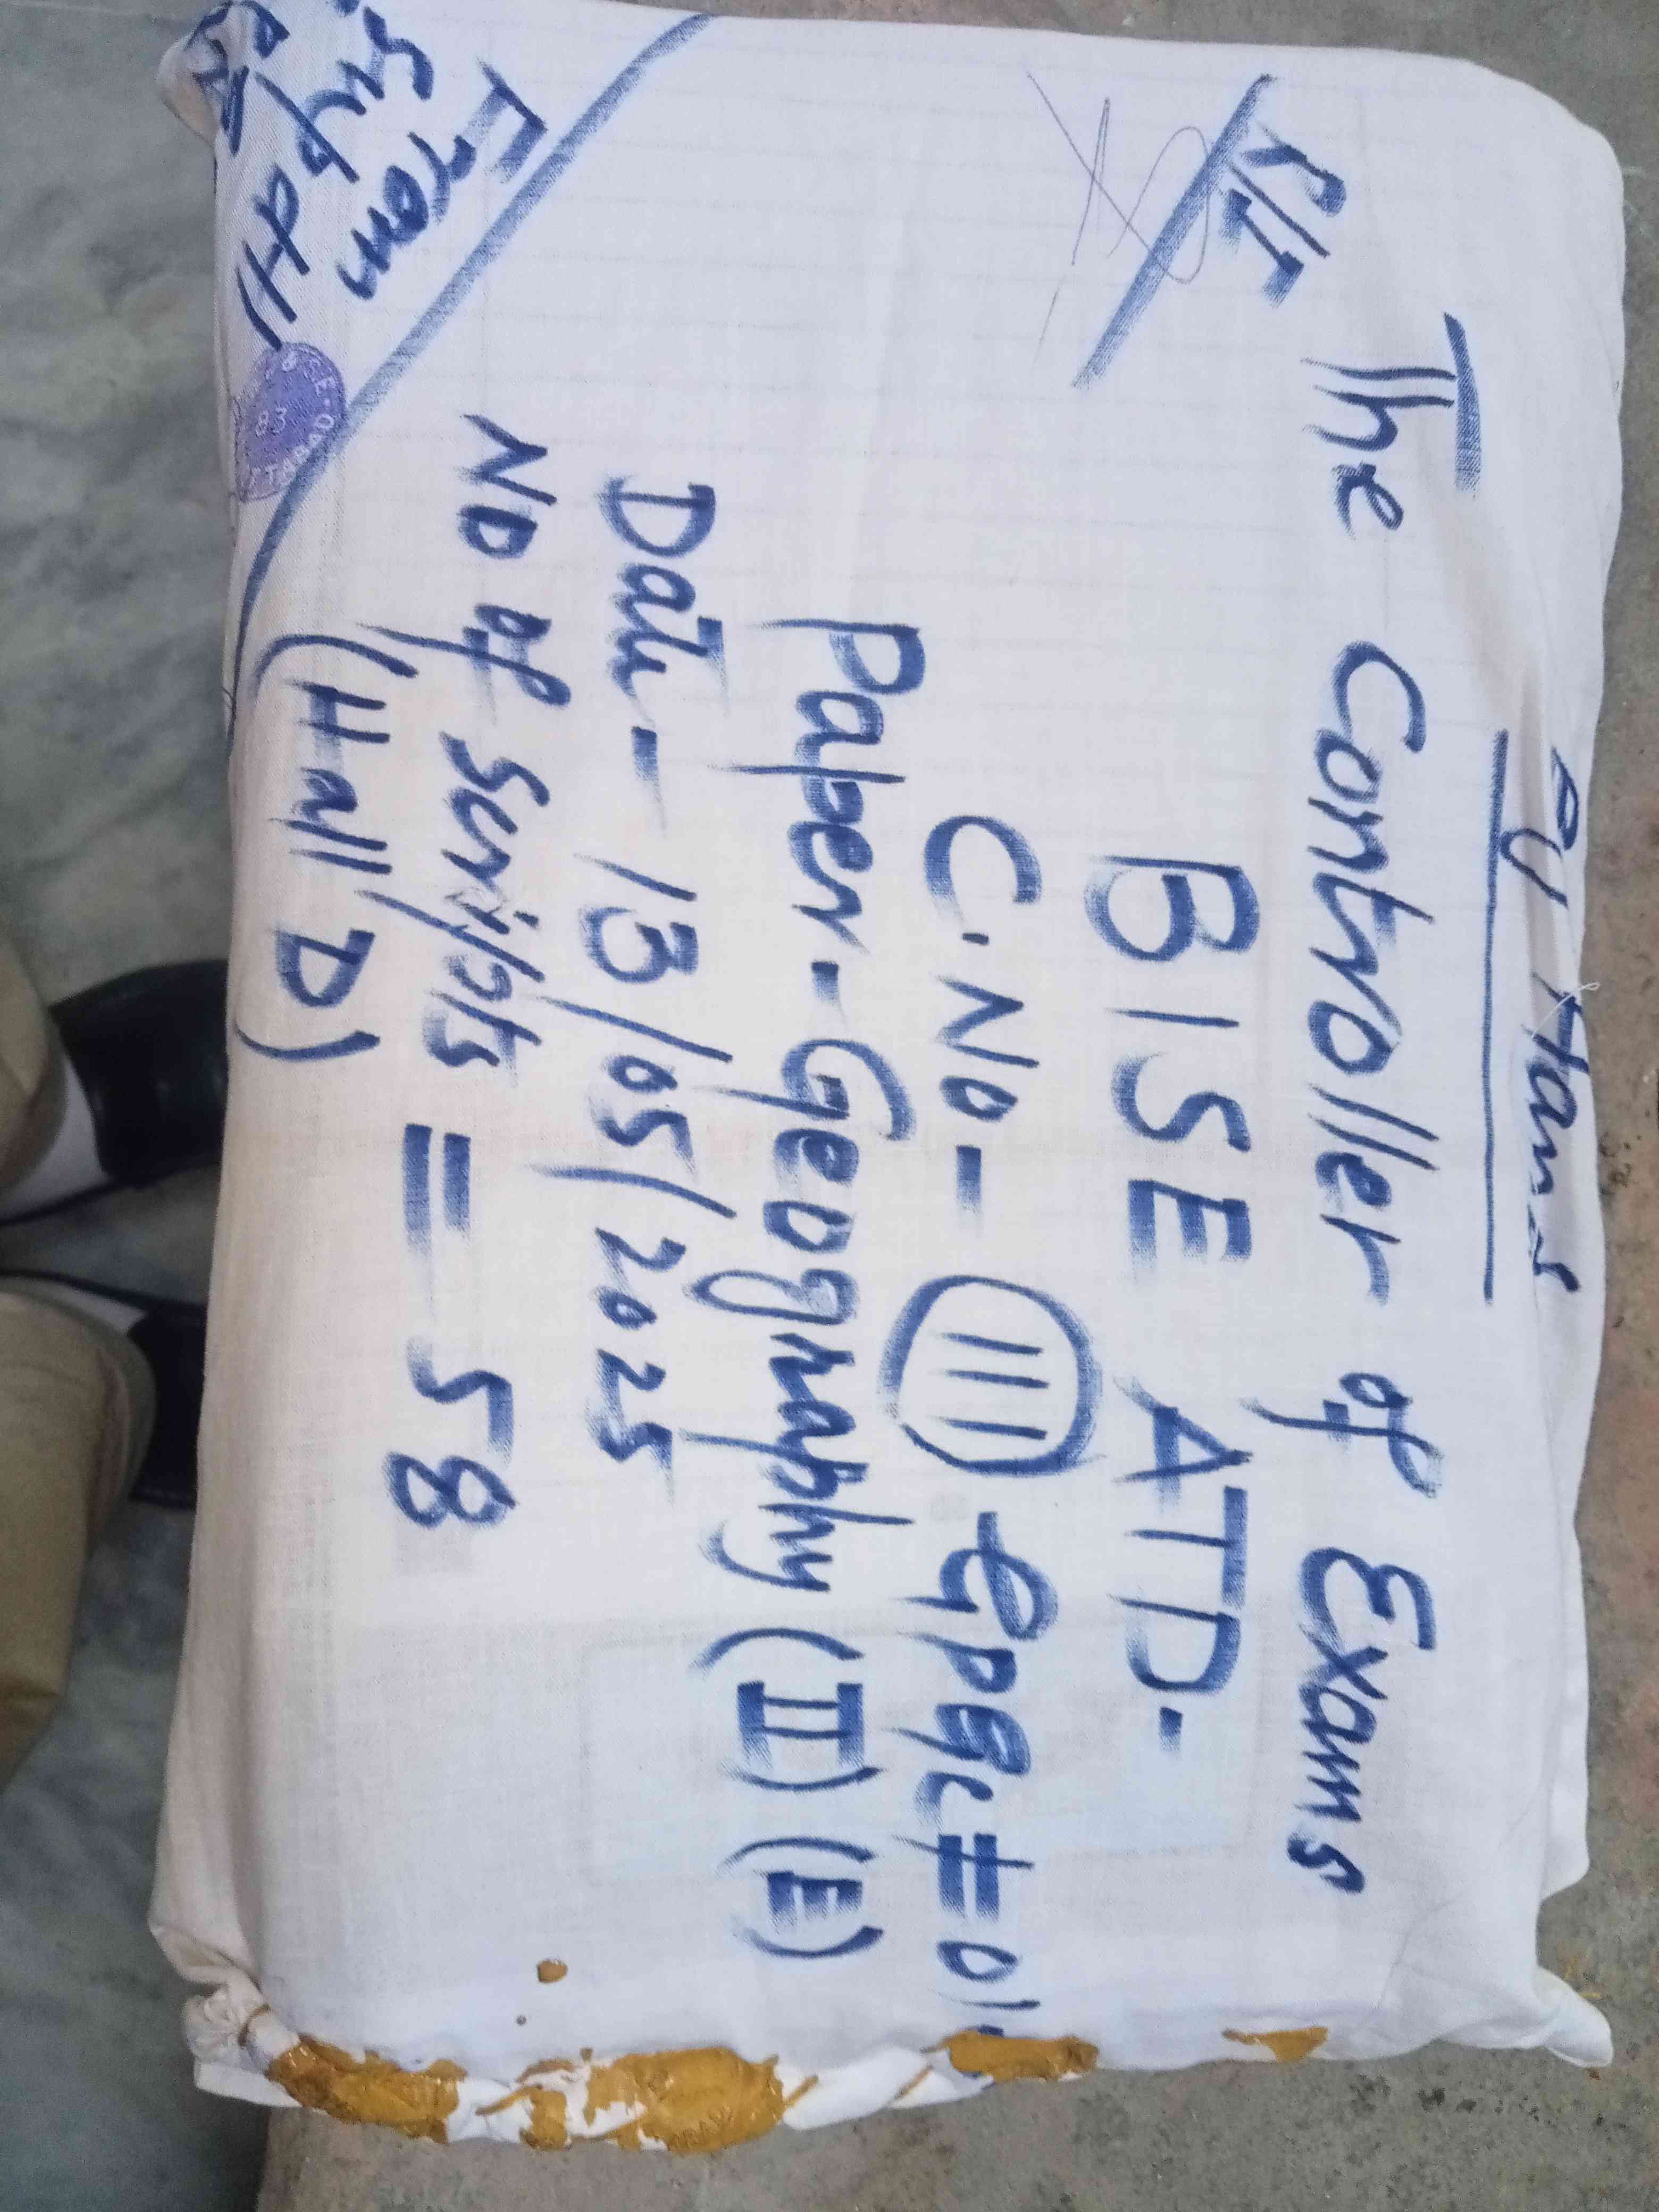 By Hand
The Controller of Exams
R/I
BISE ATD.
C.No - (111) GPGC # 01
Paper - Geography (II) (E)
Date - 13/05/2025
No of Scripts = 58
(Hall D)
From
Supdt
83